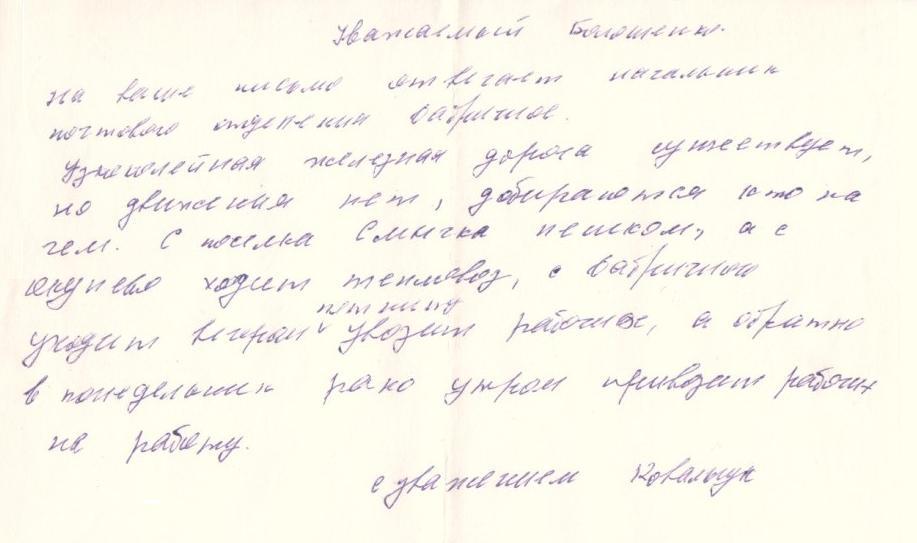 Уважаемый Болошенко.
на ваше письмо отвечает начальник
почтового отделения Фабричное.
Узкоколейная железная дорога существует,
но движения нет, добираются кто на
чем. С поселка Смычка пешком, а с
окунево ходит тепловоз, с Фабричного
уходит вечером пятницу увозит рабочих, а обратно
в понедельник рано утром привозит рабочих
на работу.
с уважением Ковальчук